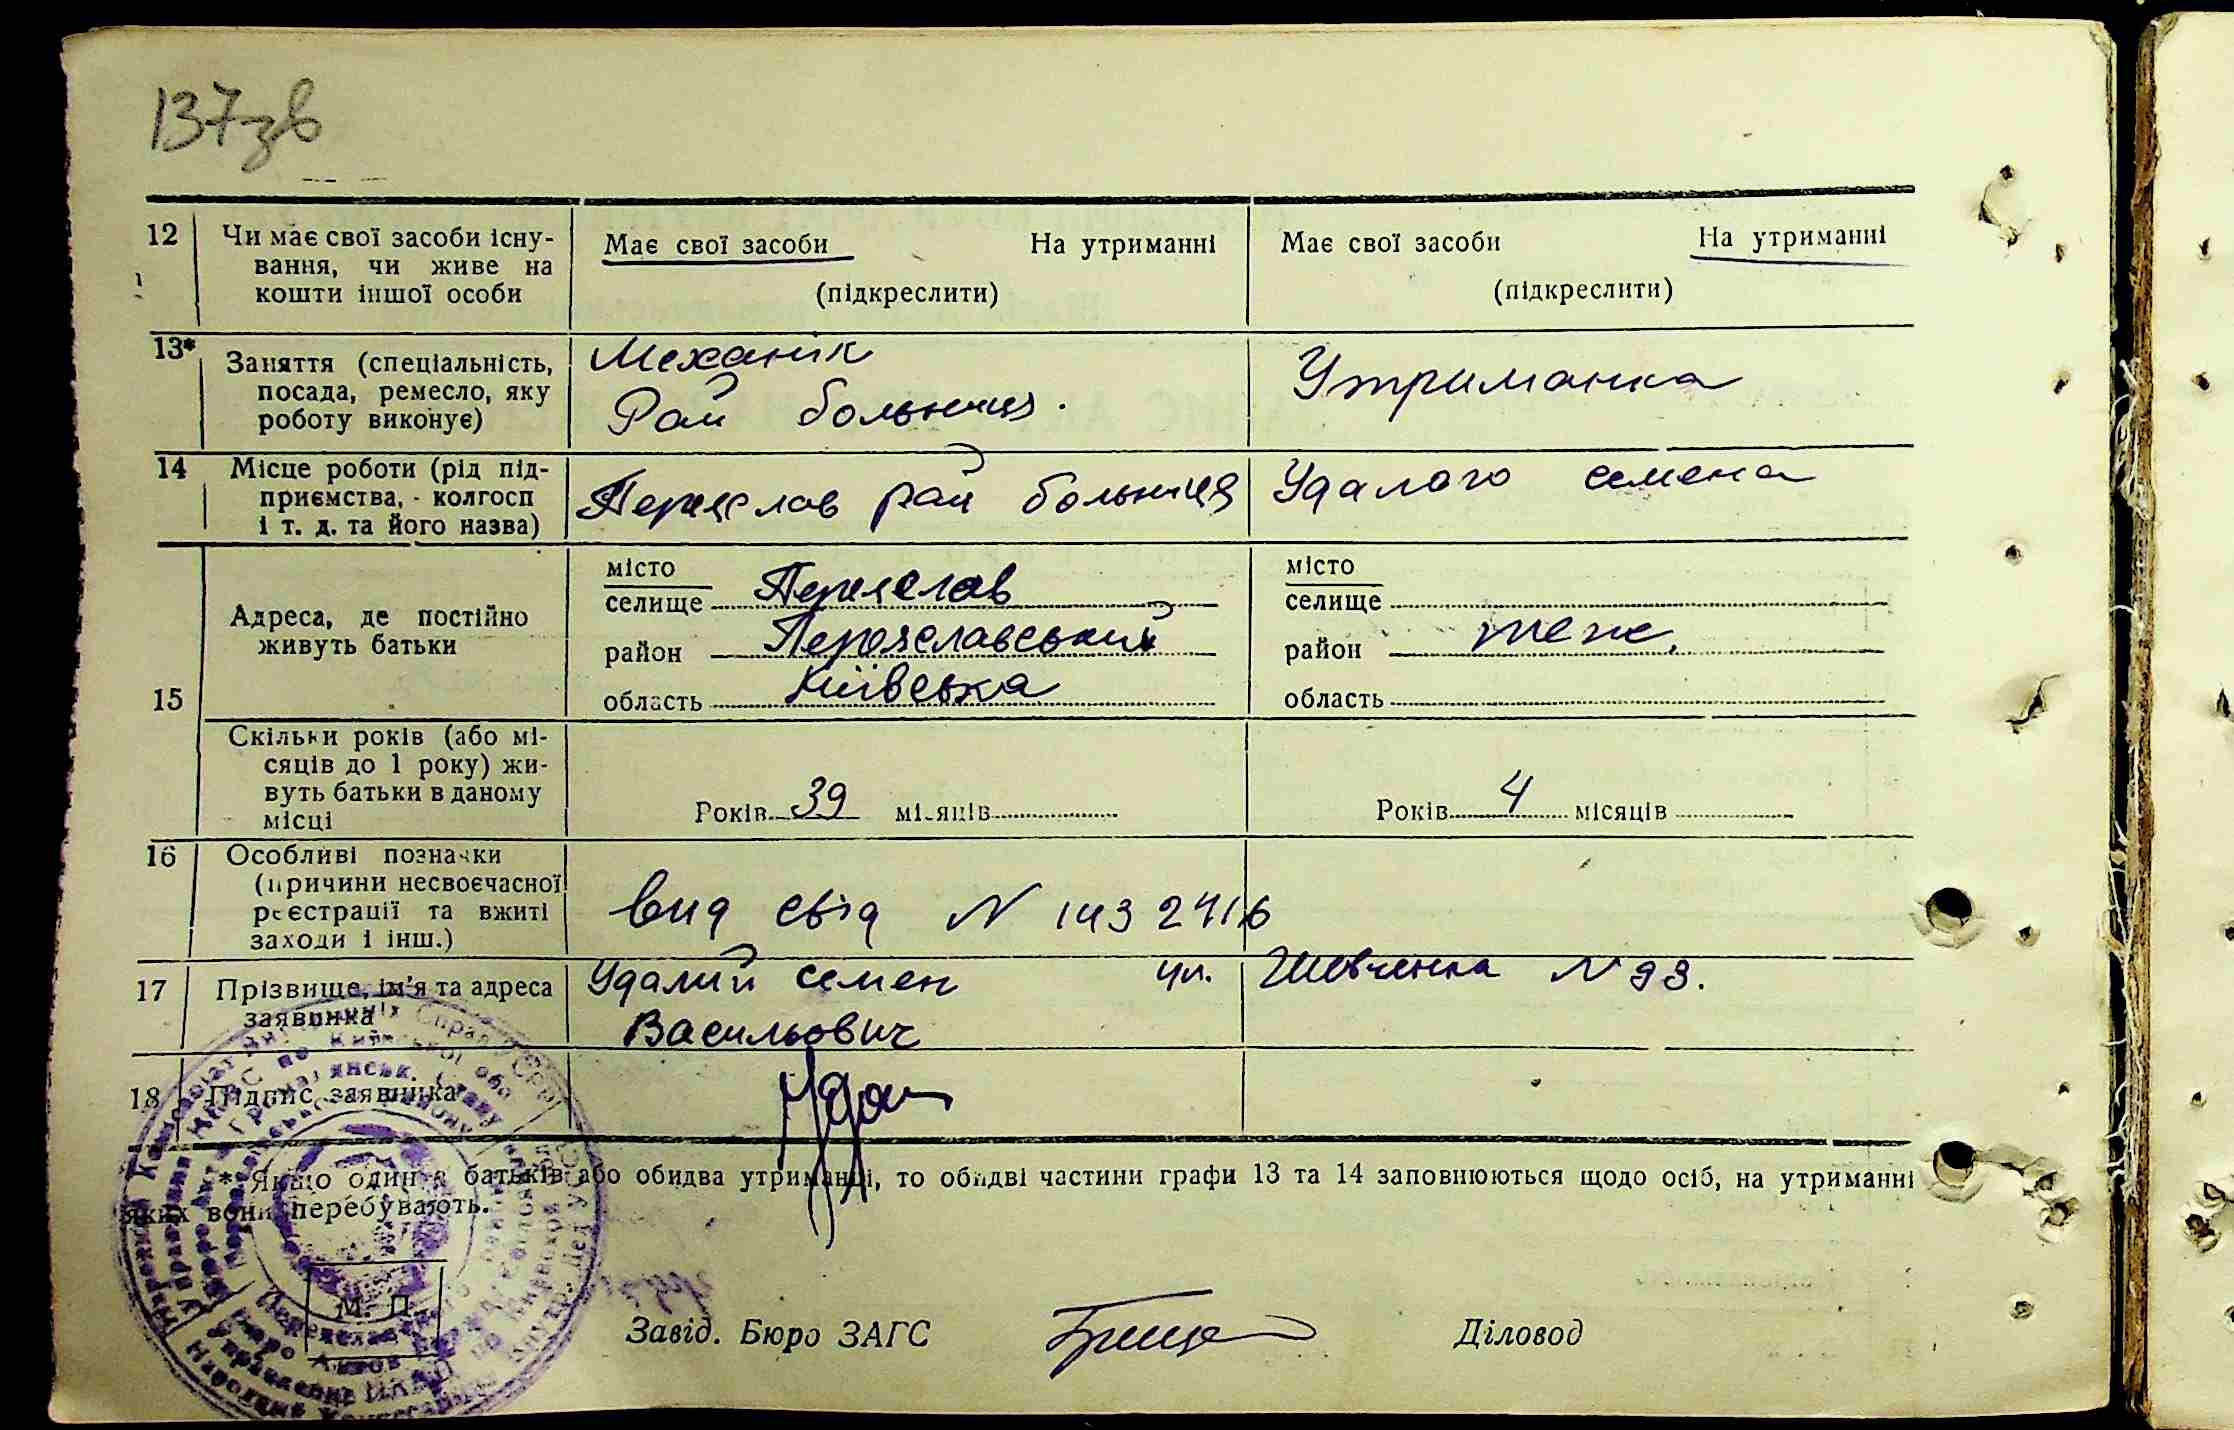 137зв
12 Чи має свої засоби існу-
вання, чи живе на
кошти іншої особи
Має свої засоби На утриманні
(підкреслити)
Має свої засоби На утриманні
(підкреслити)
13* Заняття (спеціальність,
посада, ремесло, яку
роботу виконує)
Механік
Рай больниця.
Утриманка
14 Місце роботи (рід під-
приємства, колгосп
і т. д. та його назва)
Переяслав рай больниця
Удалого семена
15 Адреса, де постійно
живуть батьки
місто
селище Переяслав
район Переяславський
область Київська
місто
селище
район теж.
область
Скільки років (або мі-
сяців до 1 року) жи-
вуть батьки в даному
місці
Років 39 місяців
Років 4 місяців
16 Особливі позначки
(причини несвоєчасної
реєстрації та вжиті
заходи і інш.)
вид свід N 1432416
17 Прізвище, ім'я та адреса
заявника
Удалий семен ул. Шевченка N 93.
Васильович
18 Підпис заявника
Удал
* Якщо один з батьків або обидва утриманці, то обидві частини графи 13 та 14 заповнюються щодо осіб, на утриманні
яких вони перебувають.
М. П.
Завід. Бюро ЗАГС Діловод